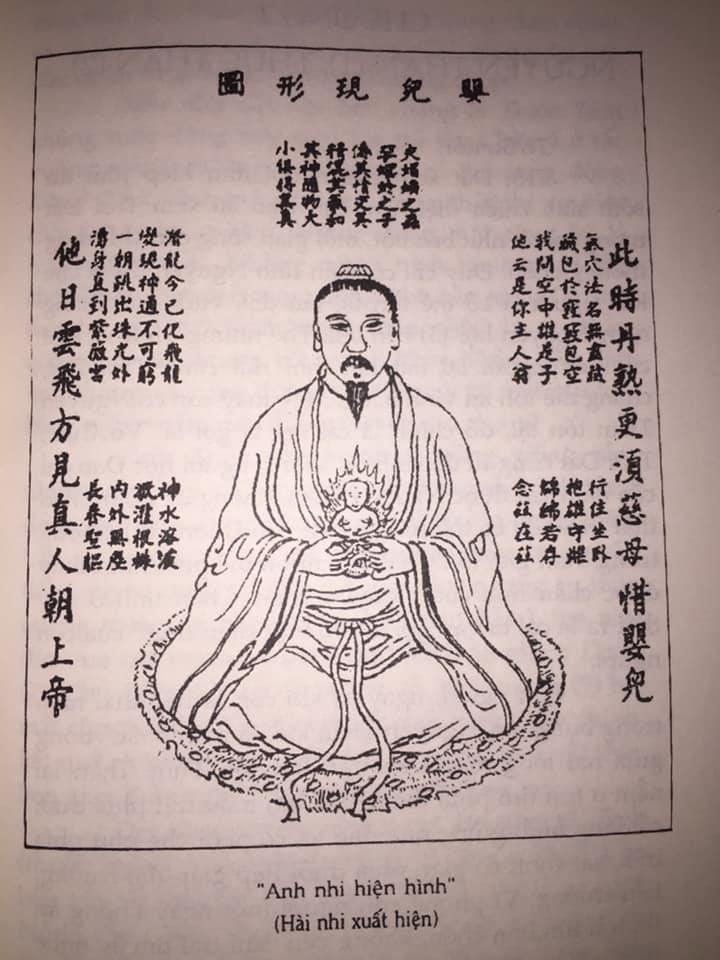 嬰兒現形圖
夫蜾蠃之蟲
孕螟蛉之子
傳其情交其
精混其氣和
其神隨物大
小俱得其真
此時丹熟更須慈母惜嬰兒
氣穴法名無盡藏
藏包於竅竅包空
我問空中誰是子
他云是你主人翁
行住坐臥
抱雄守雌
綿綿若存
念茲在茲
潛龍今已化飛龍
變現神通不可窮
一朝跳出珠光外
湧身直到紫微宮
神水溶液
溉灌根株
內外無塵
長養聖軀
他日雲飛方見真人朝上帝
"Anh nhi hiện hình"
(Hài nhi xuất hiện)